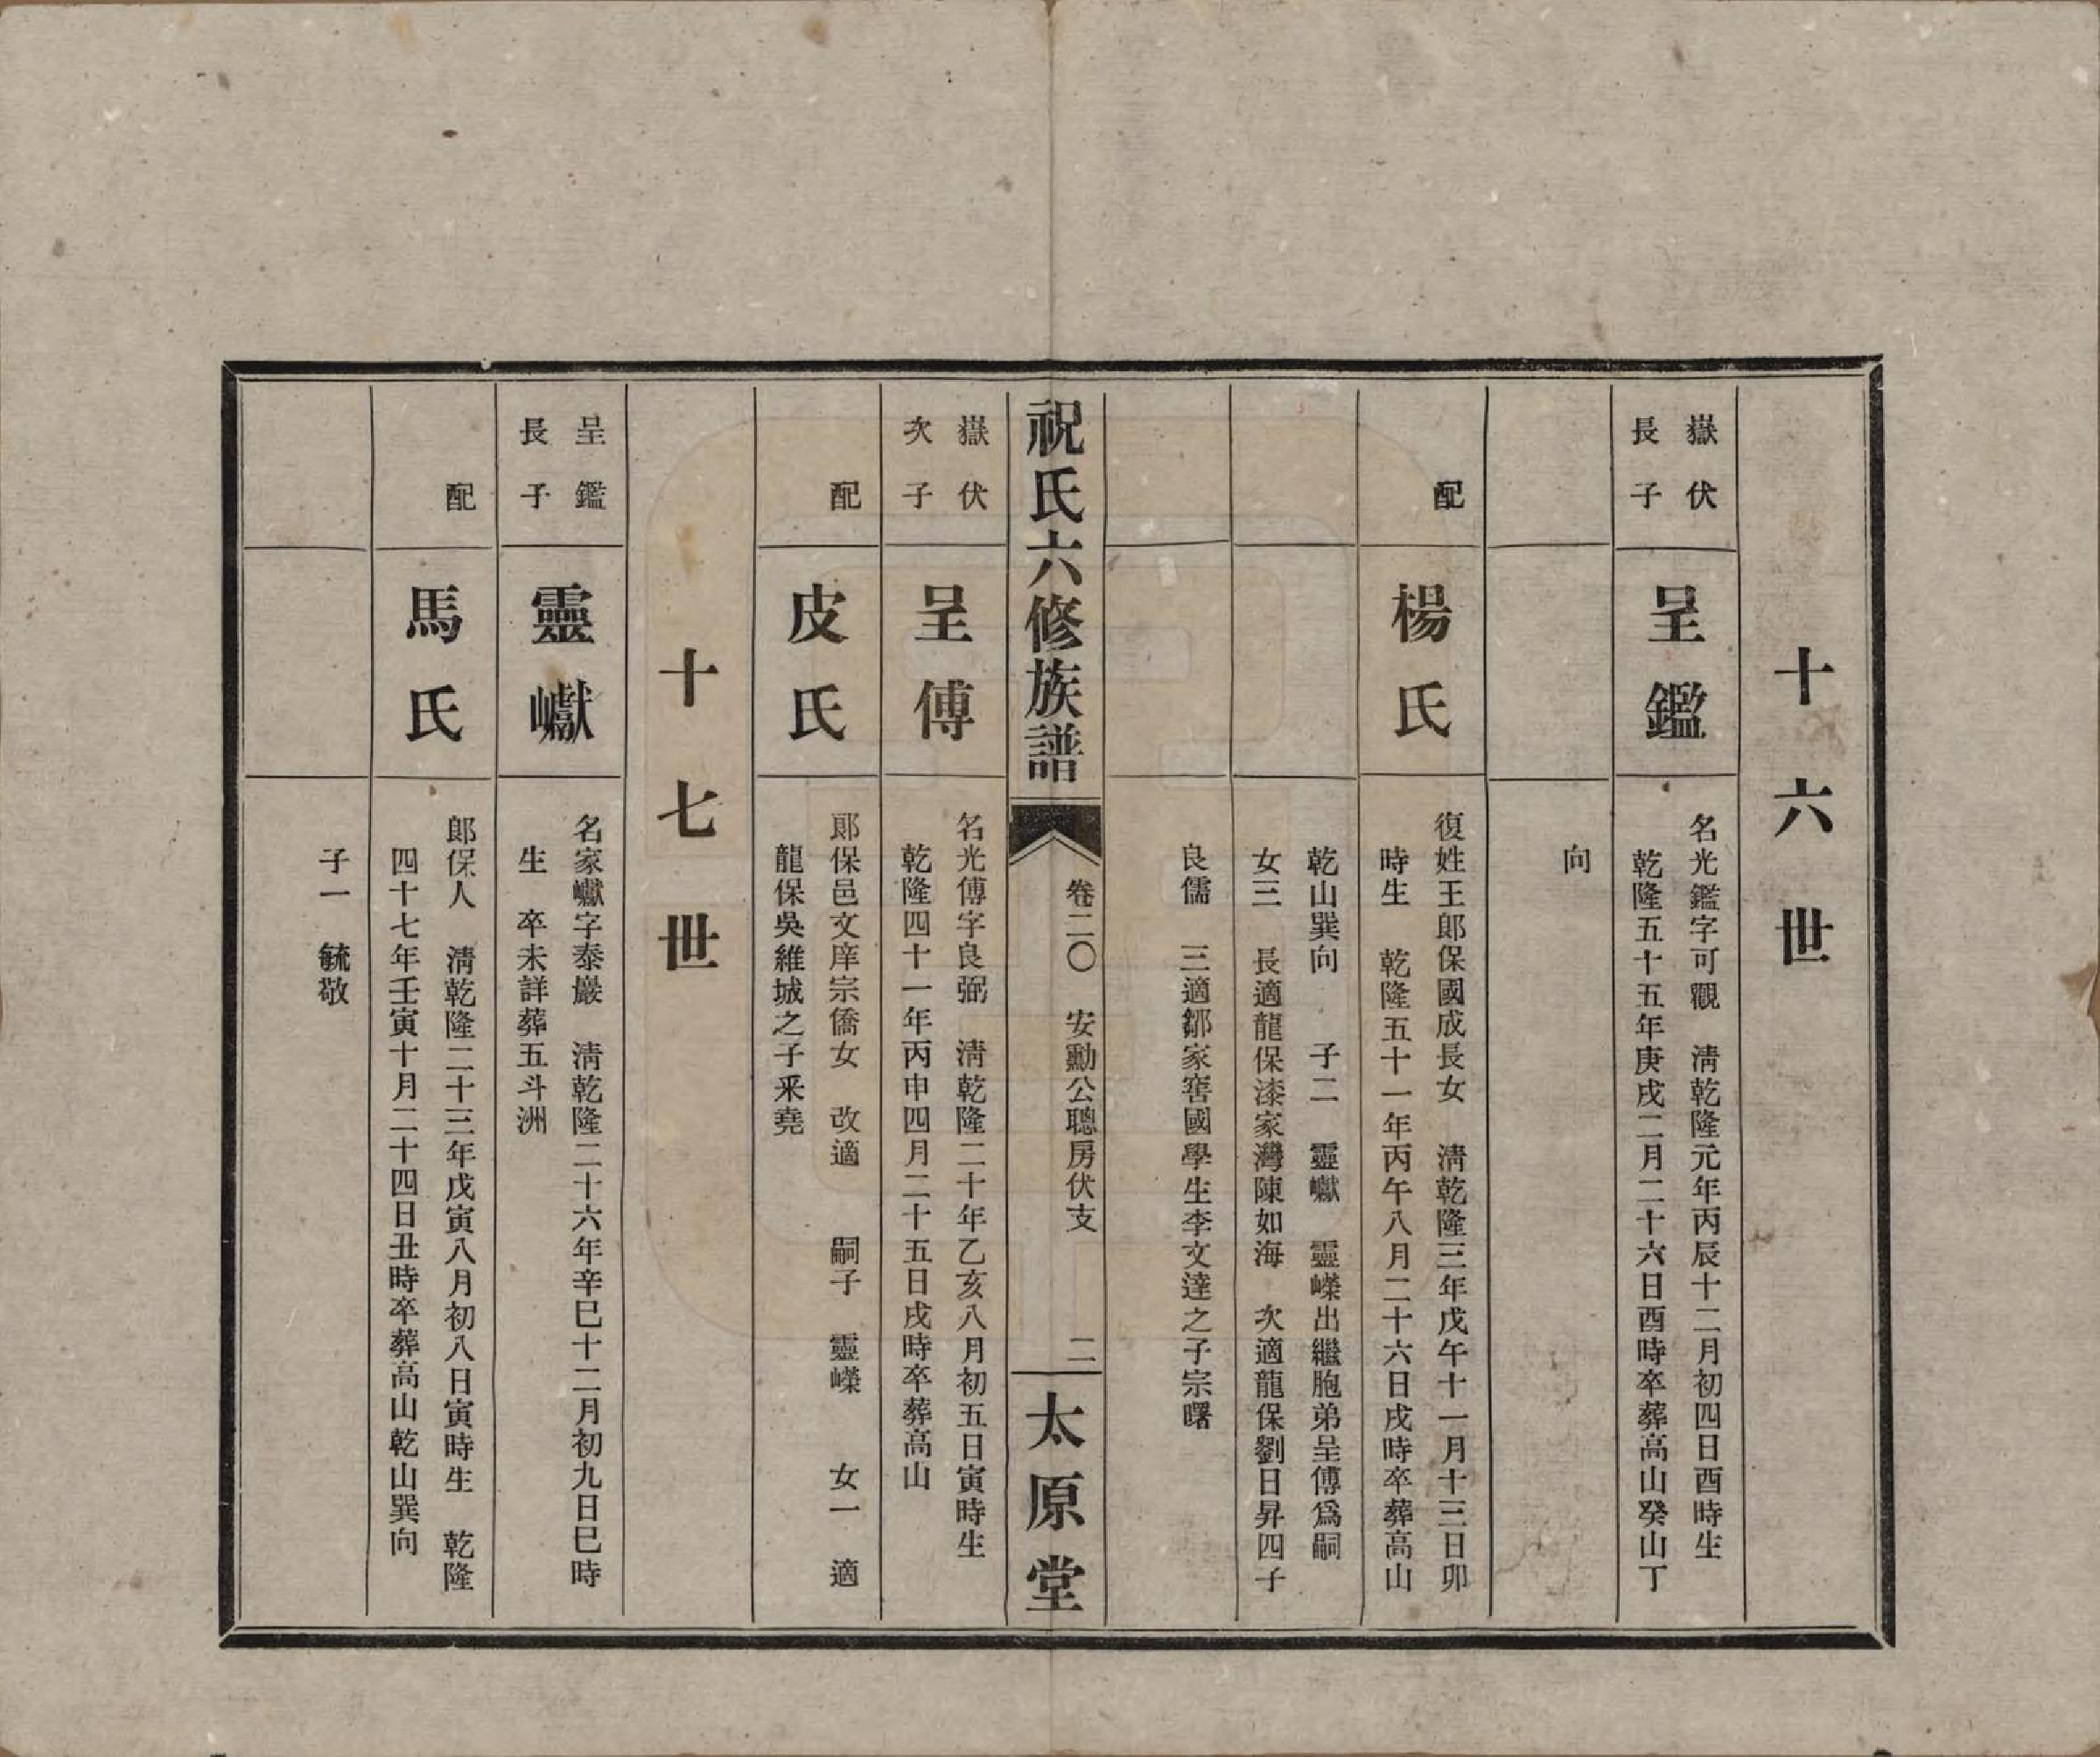 十六世
嶽伏
長子
呈鑑
名光鑑字可觀　清乾隆元年丙辰十二月初四日酉時生
乾隆五十五年庚戌二月二十六日酉時卒葬高山癸山丁
向
配
楊氏
復姓王郎保國成長女　清乾隆三年戊午十一月十三日卯
時生　乾隆五十一年丙午八月二十六日戌時卒葬高山
乾山巽向　子二　靈巘　靈嶸出繼胞弟呈傅爲嗣
女三　長適龍保漆家灣陳如海　次適龍保劉日昇四子
良儒　三適鄒家窖國學生李文達之子宗曙
祝氏六修族譜
卷二〇　安勳公聰房伏支
二
太原堂
嶽伏
次子
呈傅
名光傅字良弼　清乾隆二十年乙亥八月初五日寅時生
乾隆四十一年丙申四月二十五日戌時卒葬高山
配
皮氏
郎保邑文庠宗僑女　改適　嗣子　靈嶸　女一　適
龍保吳維城之子釆堯
十七世
呈鑑
長子
靈巘
名家巘字泰巖　清乾隆二十六年辛巳十二月初九日巳時
生　卒未詳葬五斗洲
配
馬氏
郎保人　清乾隆二十三年戊寅八月初八日寅時生　乾隆
四十七年壬寅十月二十四日丑時卒葬高山乾山巽向
子一　毓敬